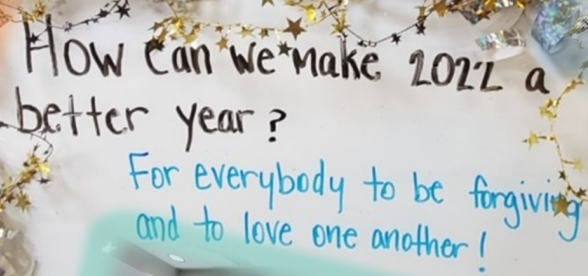 How can we make 2022 a
better year?
For everybody to be forgiving
and to love one another!